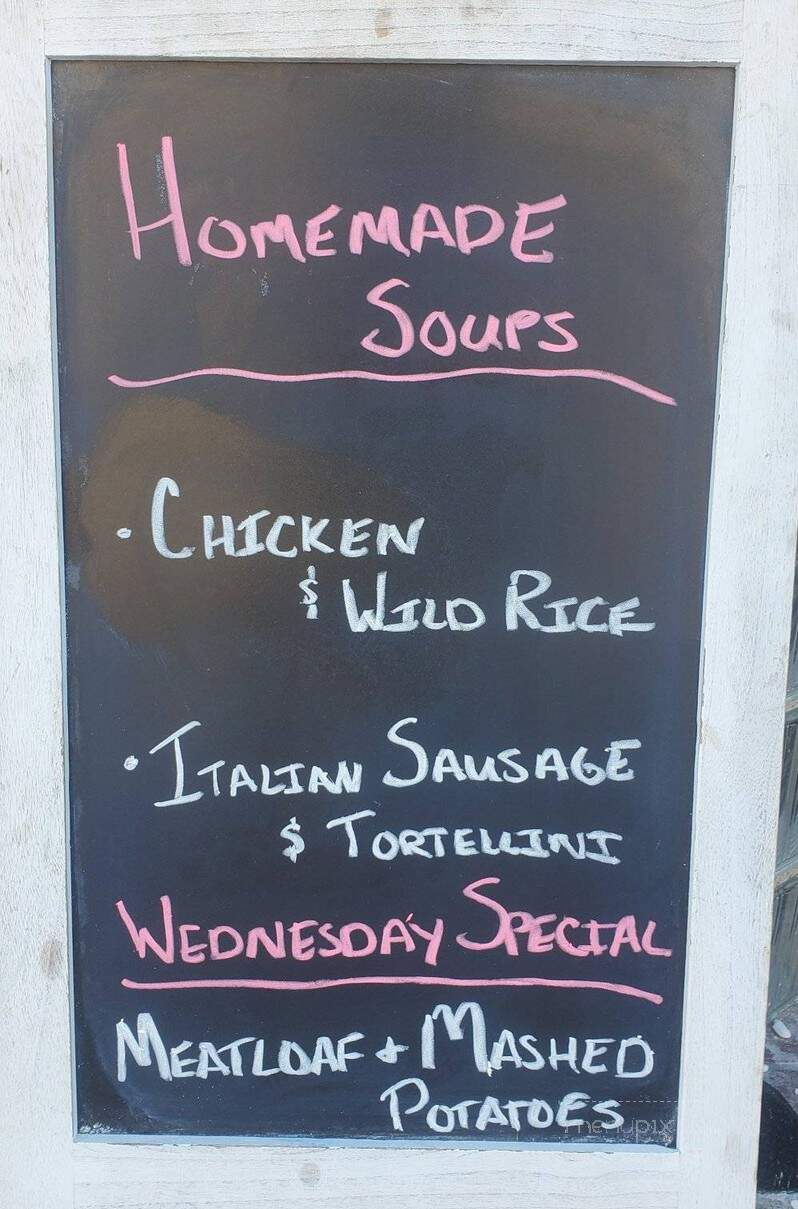 HOMEMADE
SOUPS
· CHICKEN
& WILD RICE
· ITALIAN SAUSAGE
& TORTELLINI
WEDNESDAY SPECIAL
MEATLOAF + MASHED
POTATOES
menupix